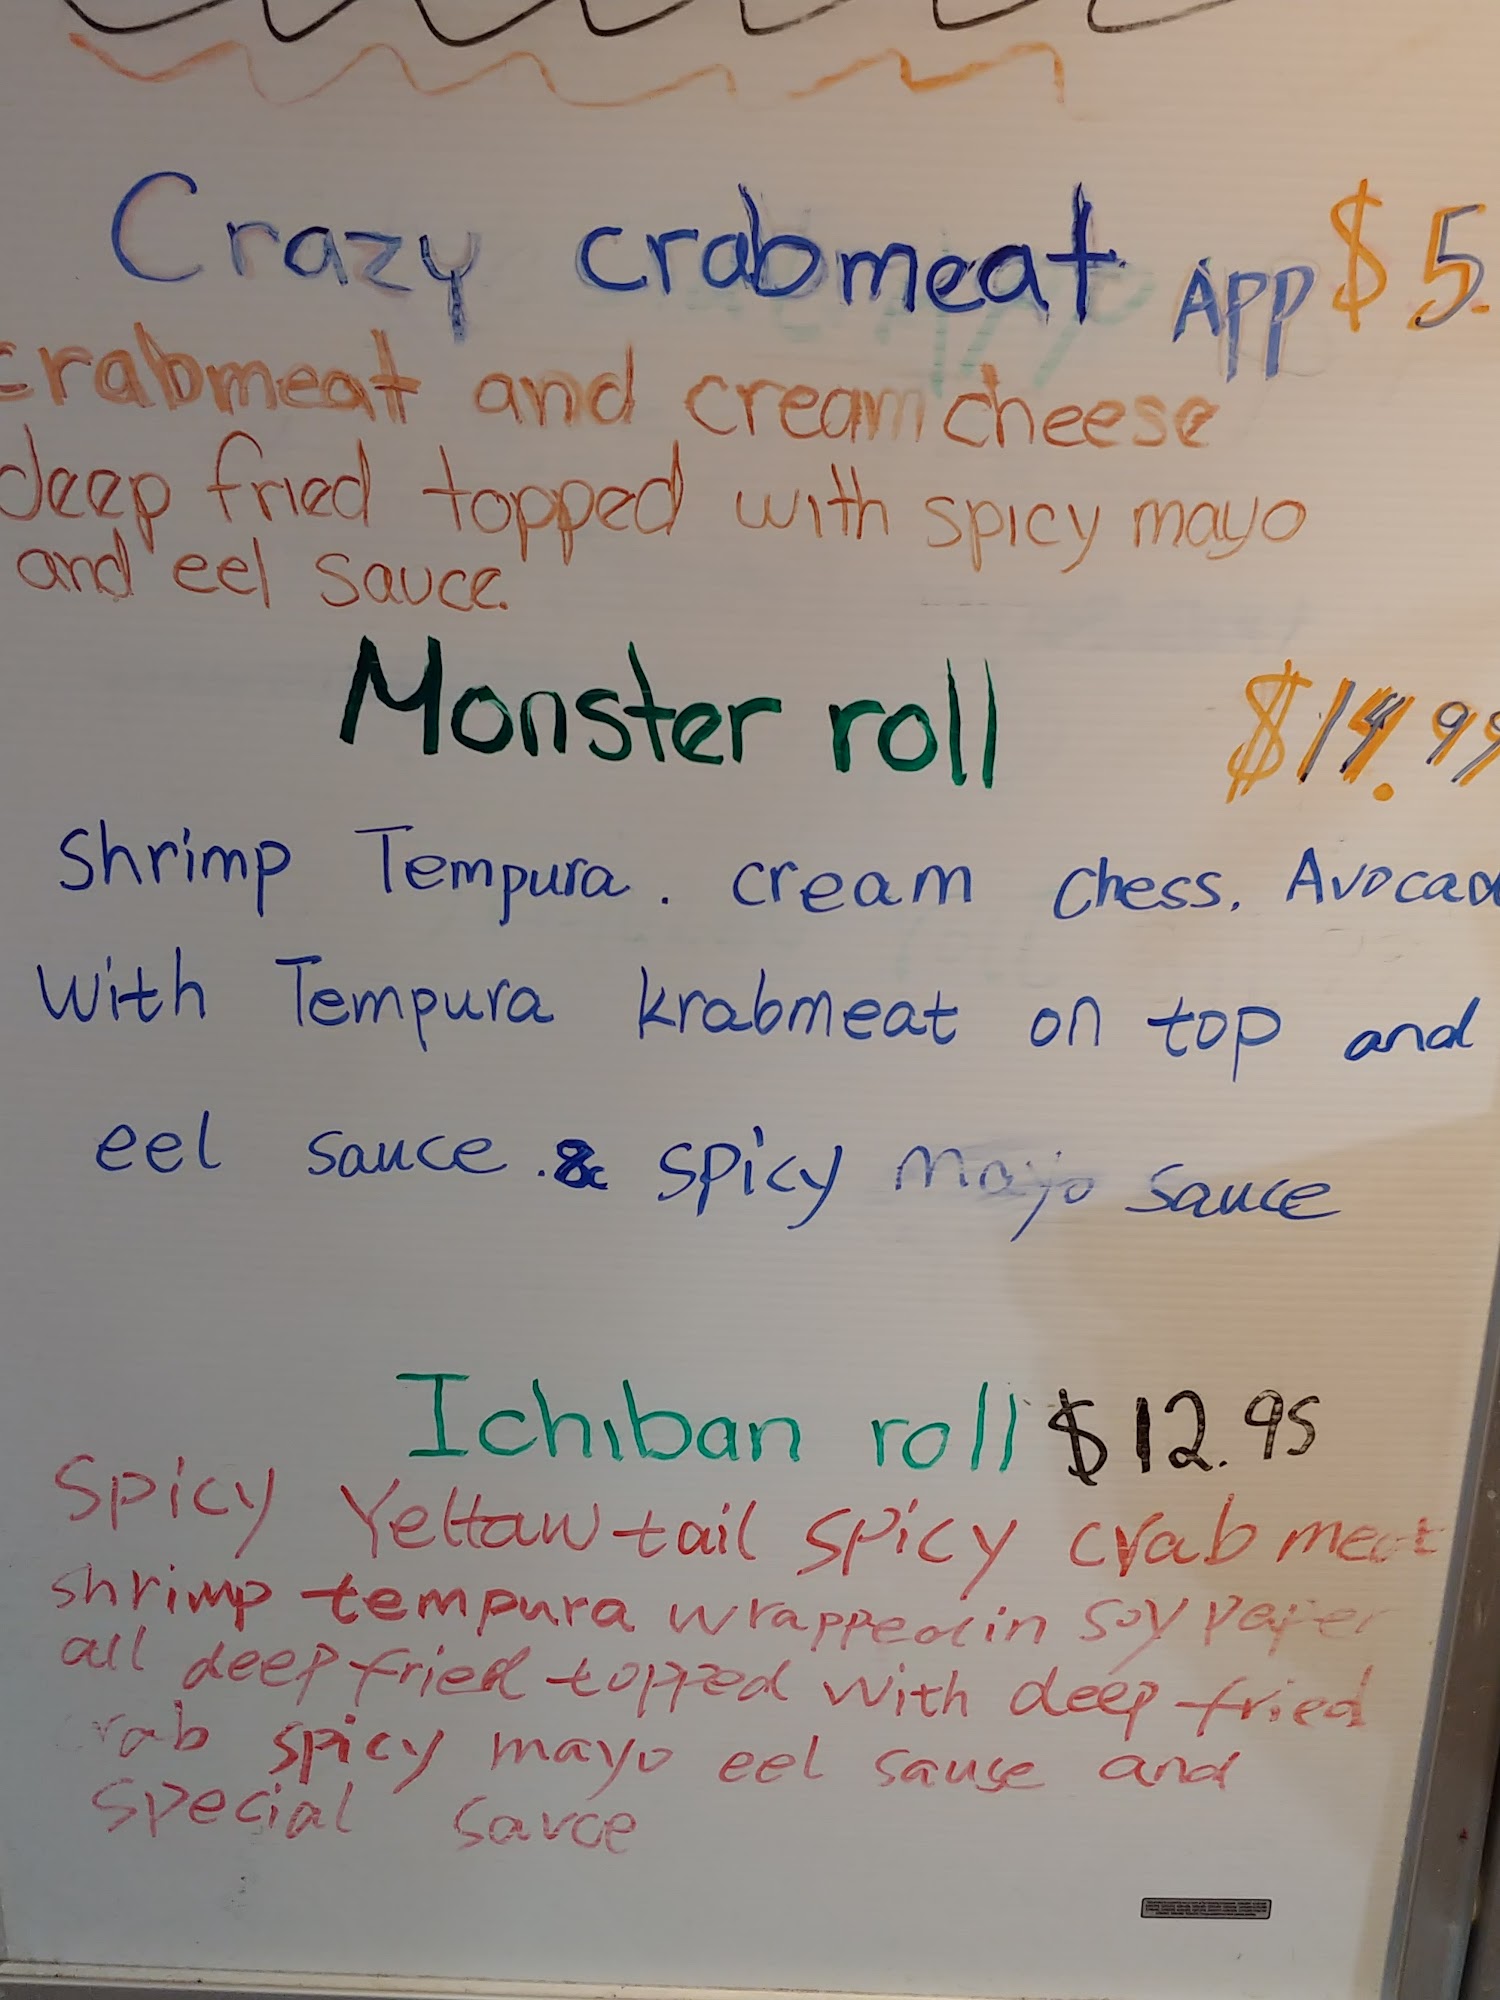 Crazy crabmeat APP $5.
crabmeat and cream cheese
deep fried topped with spicy mayo
and eel sauce.
Monster roll $14.99
Shrimp Tempura. cream chess, Avocad
with Tempura krabmeat on top and
eel sauce. & spicy mayo sauce
Ichiban roll $12.95
Spicy Yellowtail spicy crab meat
shrimp tempura wrapped in soy paper
all deep fried topped with deep fried
crab spicy mayo eel sause and
special sauce